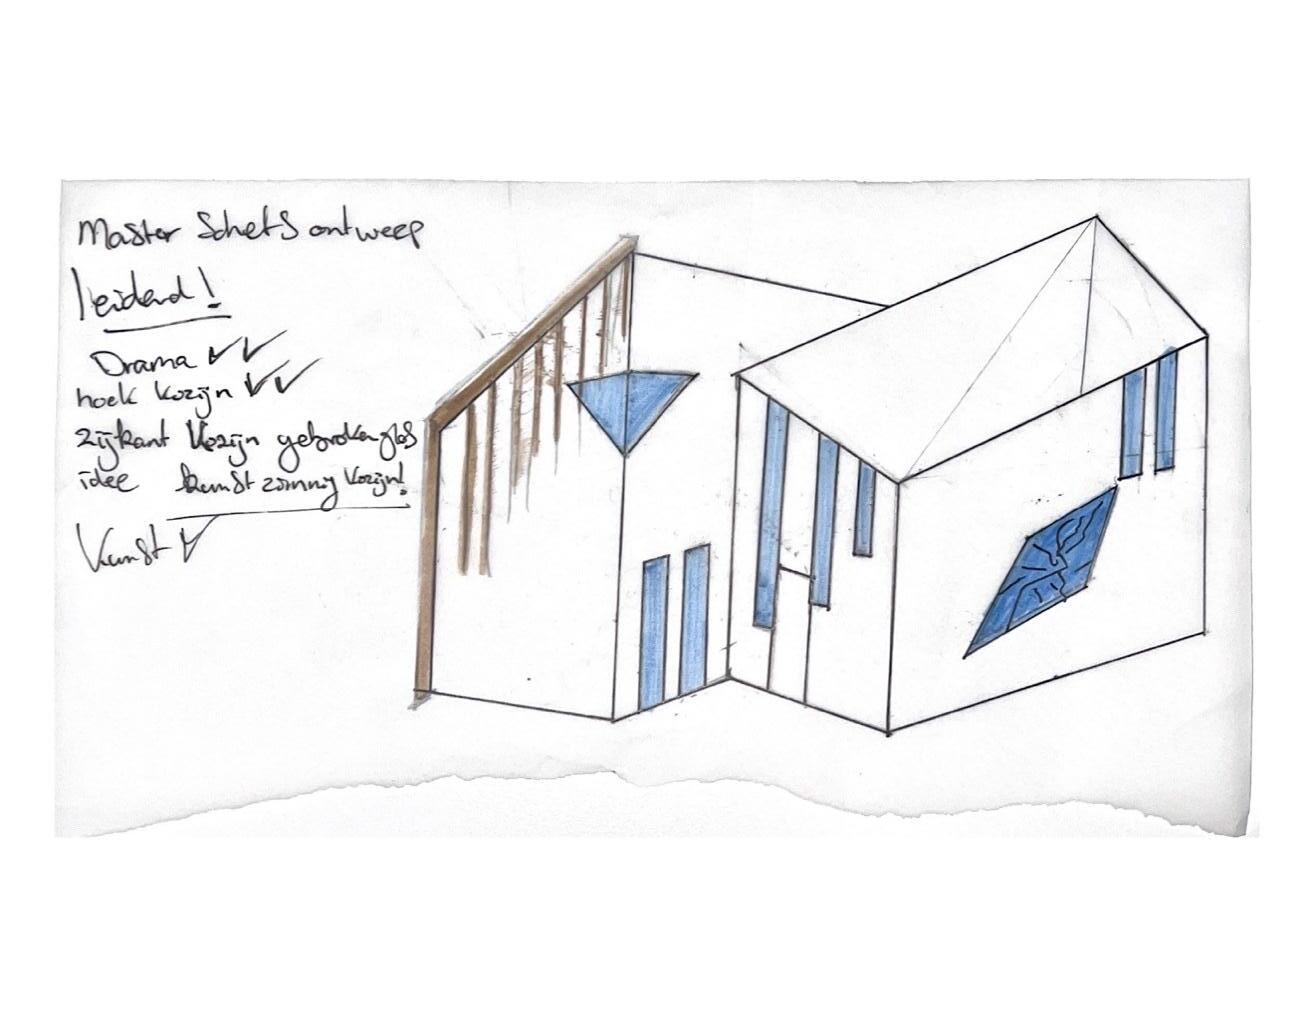 Master Schets ontweep
leidend!
Drama
hoek kozijn
zijkant kozijn gebroken glas
idee kunstzinnig kozijn!
Kunst